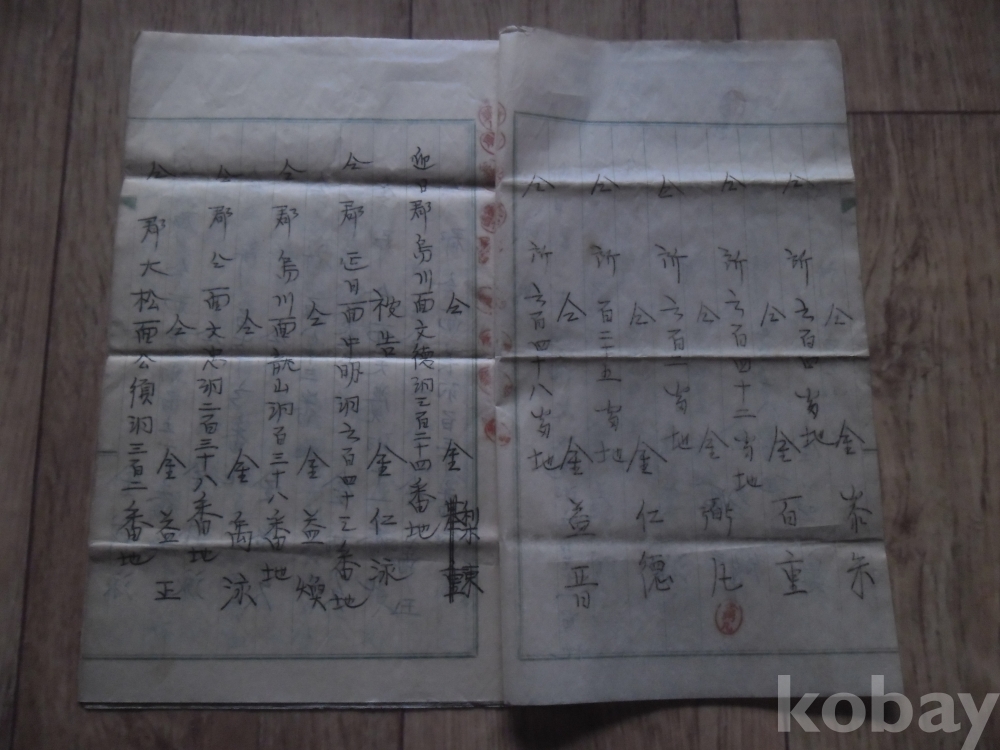 仝 金
仝 所 六百四番地
仝 金 百重
仝 所 六百四十二番地
仝 金 弼
仝 所 六百一番地
仝 金 仁德
仝 所 百二十五番地
仝 金 益晋
仝 所 六百四十八番地
仝 金
迎日郡烏川面文德洞三百二十四番地
被告 金 仁泳
仝郡延日面中明洞六百四十三番地
仝 金 益煥
仝郡烏川面龍山洞百三十八番地
仝 金 禹泳
仝郡仝面文忠洞二百三十八番地
仝 金 益正
仝郡大松面公須洞三百二番地
kobay